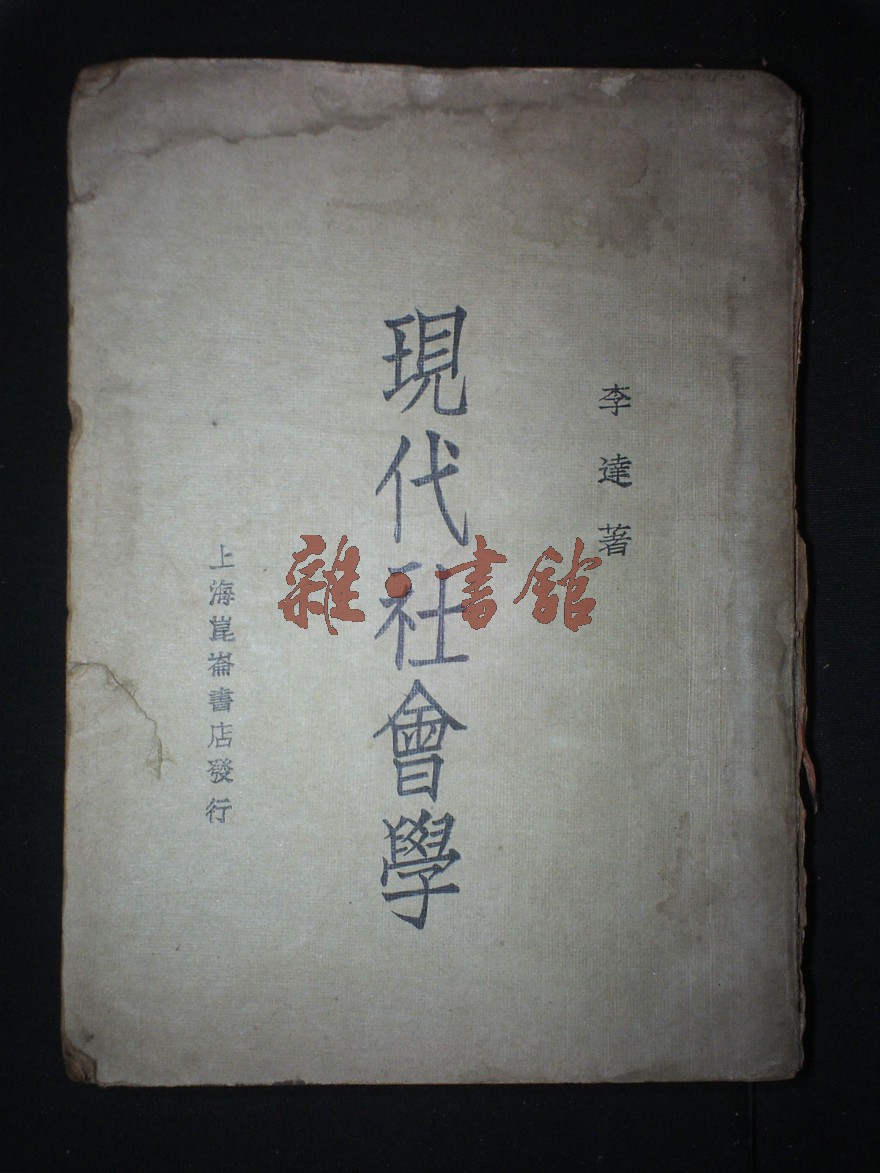 李達著
現代社會學
上海崑崙書店發行
雜·書館